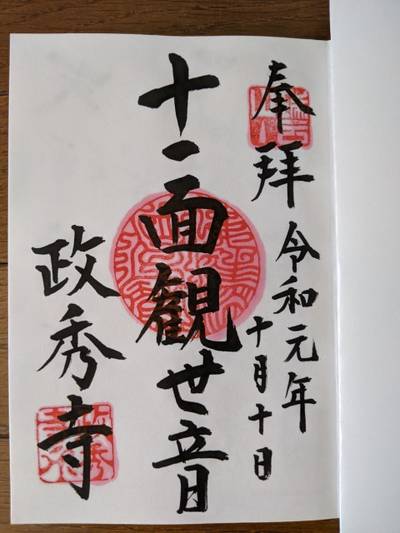 奉拜
令和元年
十月十日
十一面観世音
政秀寺